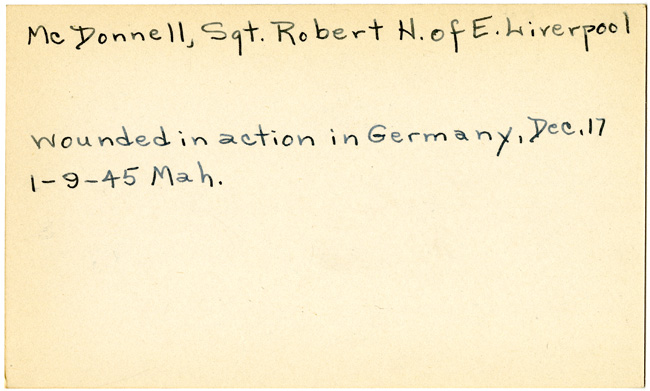 McDonnell, Sgt. Robert H. of E. Liverpool
wounded in action in Germany, Dec. 17
1-9-45 Mah.